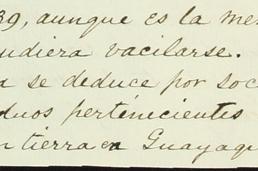 39, aunque es la me
udiera vacilarse.
a se deduce por soc
duos pertenicientes
n tierra en Guayaqu